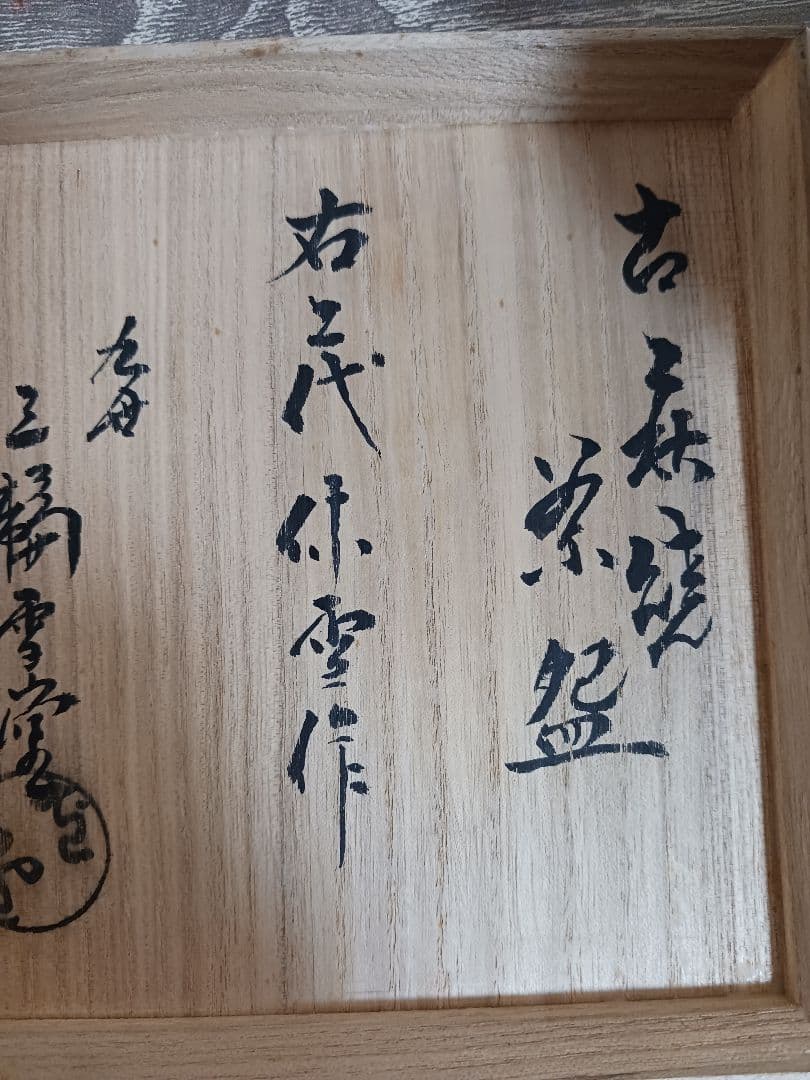 古萩焼
茶盌
右二代休雪作
九世
三輪雪堂